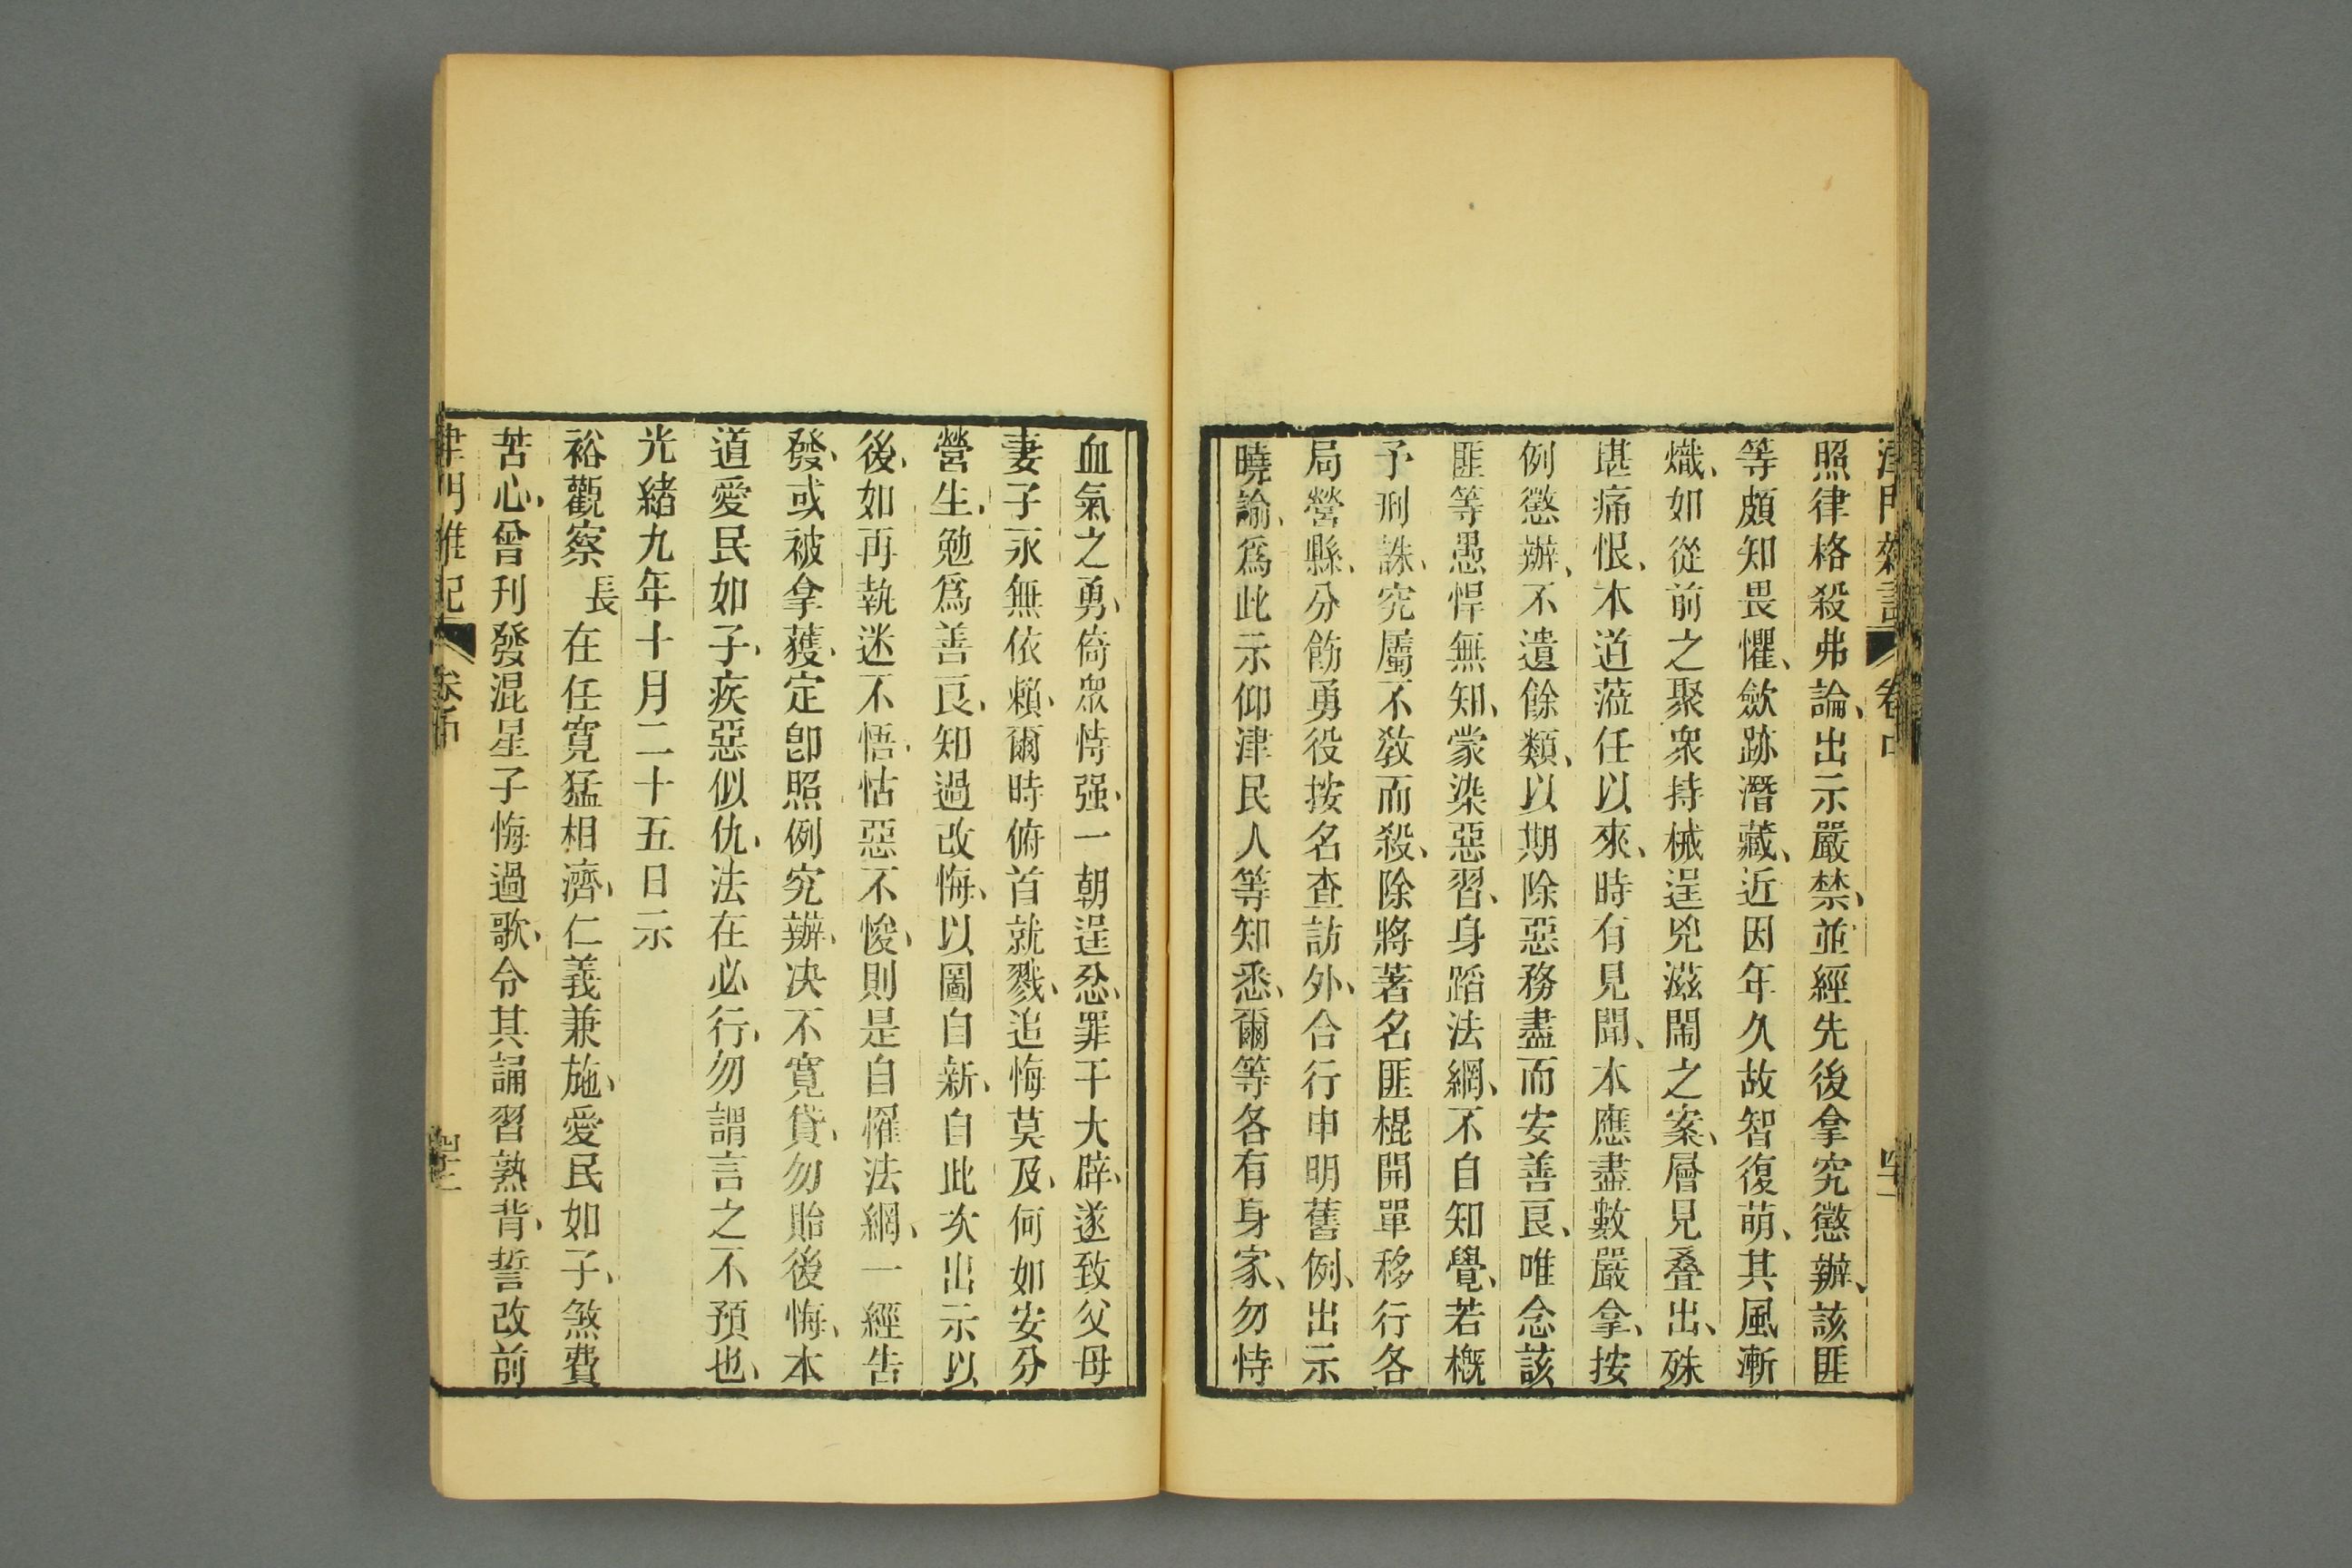 津門雜記 卷中
照律格殺弗論、出示嚴禁、並經先後拿究懲辦、該匪
等頗知畏懼、歛跡潛藏、近因年久故智復萌、其風漸
熾、如從前之聚衆持械逞兇滋鬧之案、層見叠出、殊
堪痛恨、本道蒞任以來、時有見聞、本應盡數嚴拿、按
例懲辦、不遺餘類、以期除惡務盡而安善良、唯念該
匪等愚悍無知、蒙染惡習、身蹈法網、不自知覺、若槪
予刑誅、究屬不敎而殺、除將著名匪棍開單移行各
局營縣、分飭勇役按名查訪外、合行申明舊例、出示
曉諭、爲此示仰津民人等知悉、爾等各有身家、勿恃
血氣之勇、倚衆恃强、一朝逞忿、罪干大辟、遂致父母
妻子永無依賴、爾時俯首就戮、追悔莫及、何如安分
營生、勉爲善良、知過改悔、以圖自新、自此次出示以
後、如再執迷不悟、怙惡不悛、則是自罹法網、一經告
發、或被拿獲、定卽照例究辦、决不寬貸、勿貽後悔、本
道愛民如子、疾惡似仇、法在必行、勿謂言之不預也、
光緒九年十月二十五日示
裕觀察長在任寬猛相濟、仁義兼施、愛民如子、煞費
苦心、曾刊發混星子悔過歌、令其誦習熟背、誓改前
津門雜記 卷中